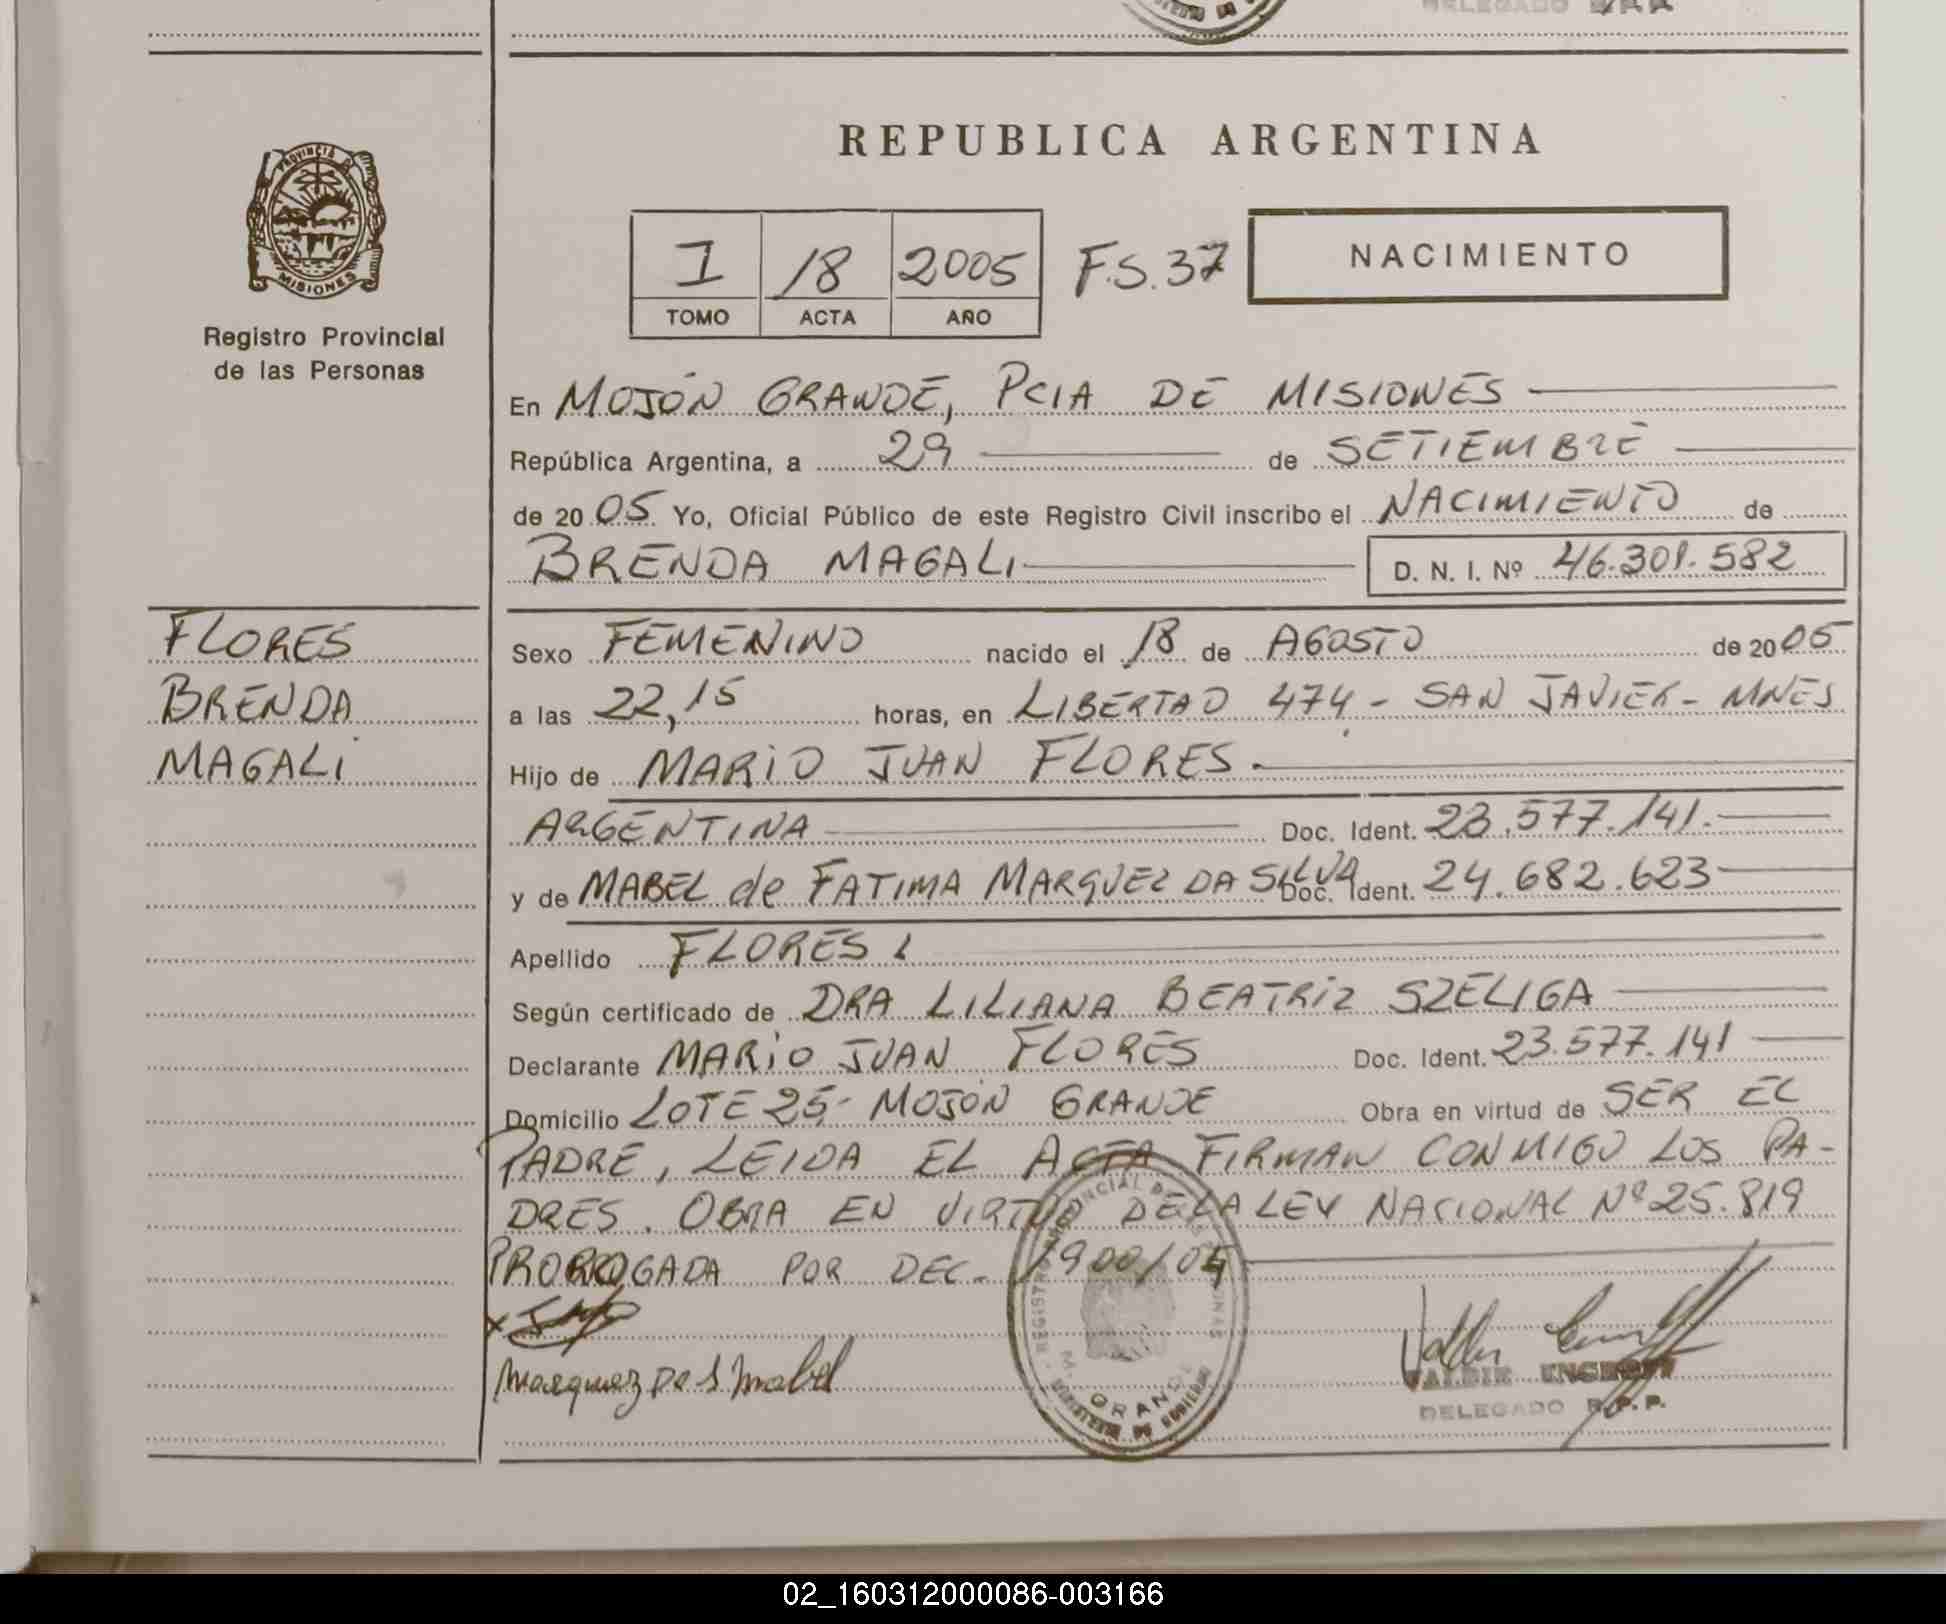 DELEGADO
REPUBLICA ARGENTINA
PROVINCIA DE
MISIONES
Registro Provincial
de las Personas
I 18 2005 F.S.37 NACIMIENTO
TOMO ACTA AÑO
En MOJÓN GRANDE, PCIA DE MISIONES
República Argentina, a 29 de SETIEMBRE
de 2005 Yo, Oficial Público de este Registro Civil inscribo el NACIMIENTO de
BRENDA MAGALI D. N. I. Nº 46.301.582
FLORES
BRENDA
MAGALI
Sexo FEMENINO nacido el 18 de AGOSTO de 2005
a las 22,15 horas, en LIBERTAD 474 - SAN JAVIER - MNES
Hijo de MARIO JUAN FLORES.
ARGENTINA Doc. Ident. 23.577.141.
y de MABEL de FATIMA MARQUEZ DA SILVA Doc. Ident. 24.682.623
Apellido FLORES
Según certificado de DRA LILIANA BEATRIZ SZELIGA
Declarante MARIO JUAN FLORES Doc. Ident. 23.577.141
Domicilio LOTE 25- MOJÓN GRANDE Obra en virtud de SER EL
PADRE, LEIDA EL ACTA FIRMAN CONMIGO LOS PA-
DRES. OBRA EN VIRTUD DE LA LEY NACIONAL Nº 25.819
PRORROGADA POR DEC. 1900/04
Marquez Da S Mabel
GRANDE
DELEGADO R.P.P.
02_160312000086-003166